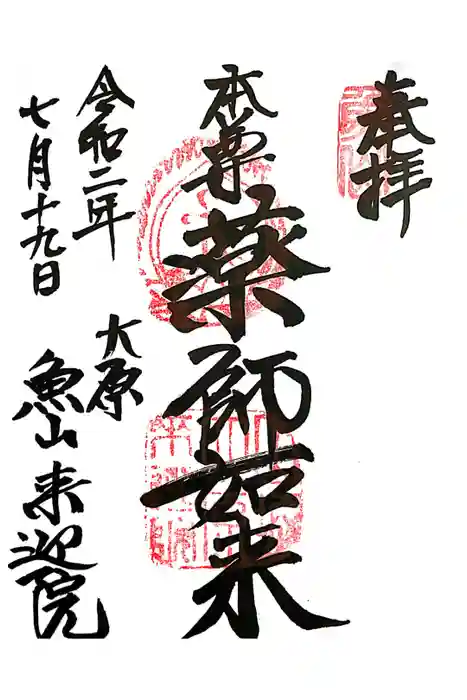 奉拝
本尊
薬師如来
令和二年
七月十九日
大原
魚山来迎院